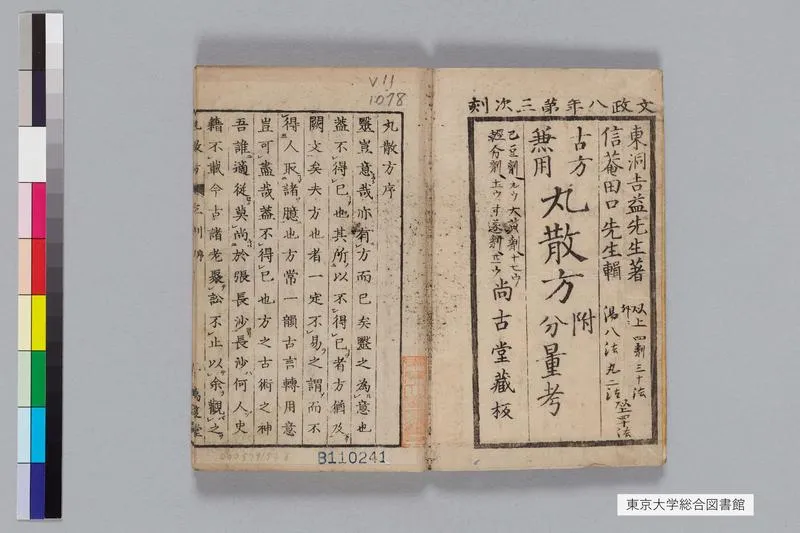 文政八年第三次刻
東洞吉益先生著
信菴田口先生輯
古方
兼用
丸散方
附
分量考
尚古堂藏板
V11
1078
丸散方序
毉豈意哉亦有方而已矣毉之為意也
蓋不得已也其所以不得已者方猶及
闕文矣夫方也者一定不易之謂而不
得人取諸臆也方常一韻古言轉用意
豈可盡哉蓋不得已也方之古術之神
吾誰適從莫尚於張長沙長沙何人史
籍不載今古諸老聚訟不止以余觀之
B110241
東京大学総合図書館